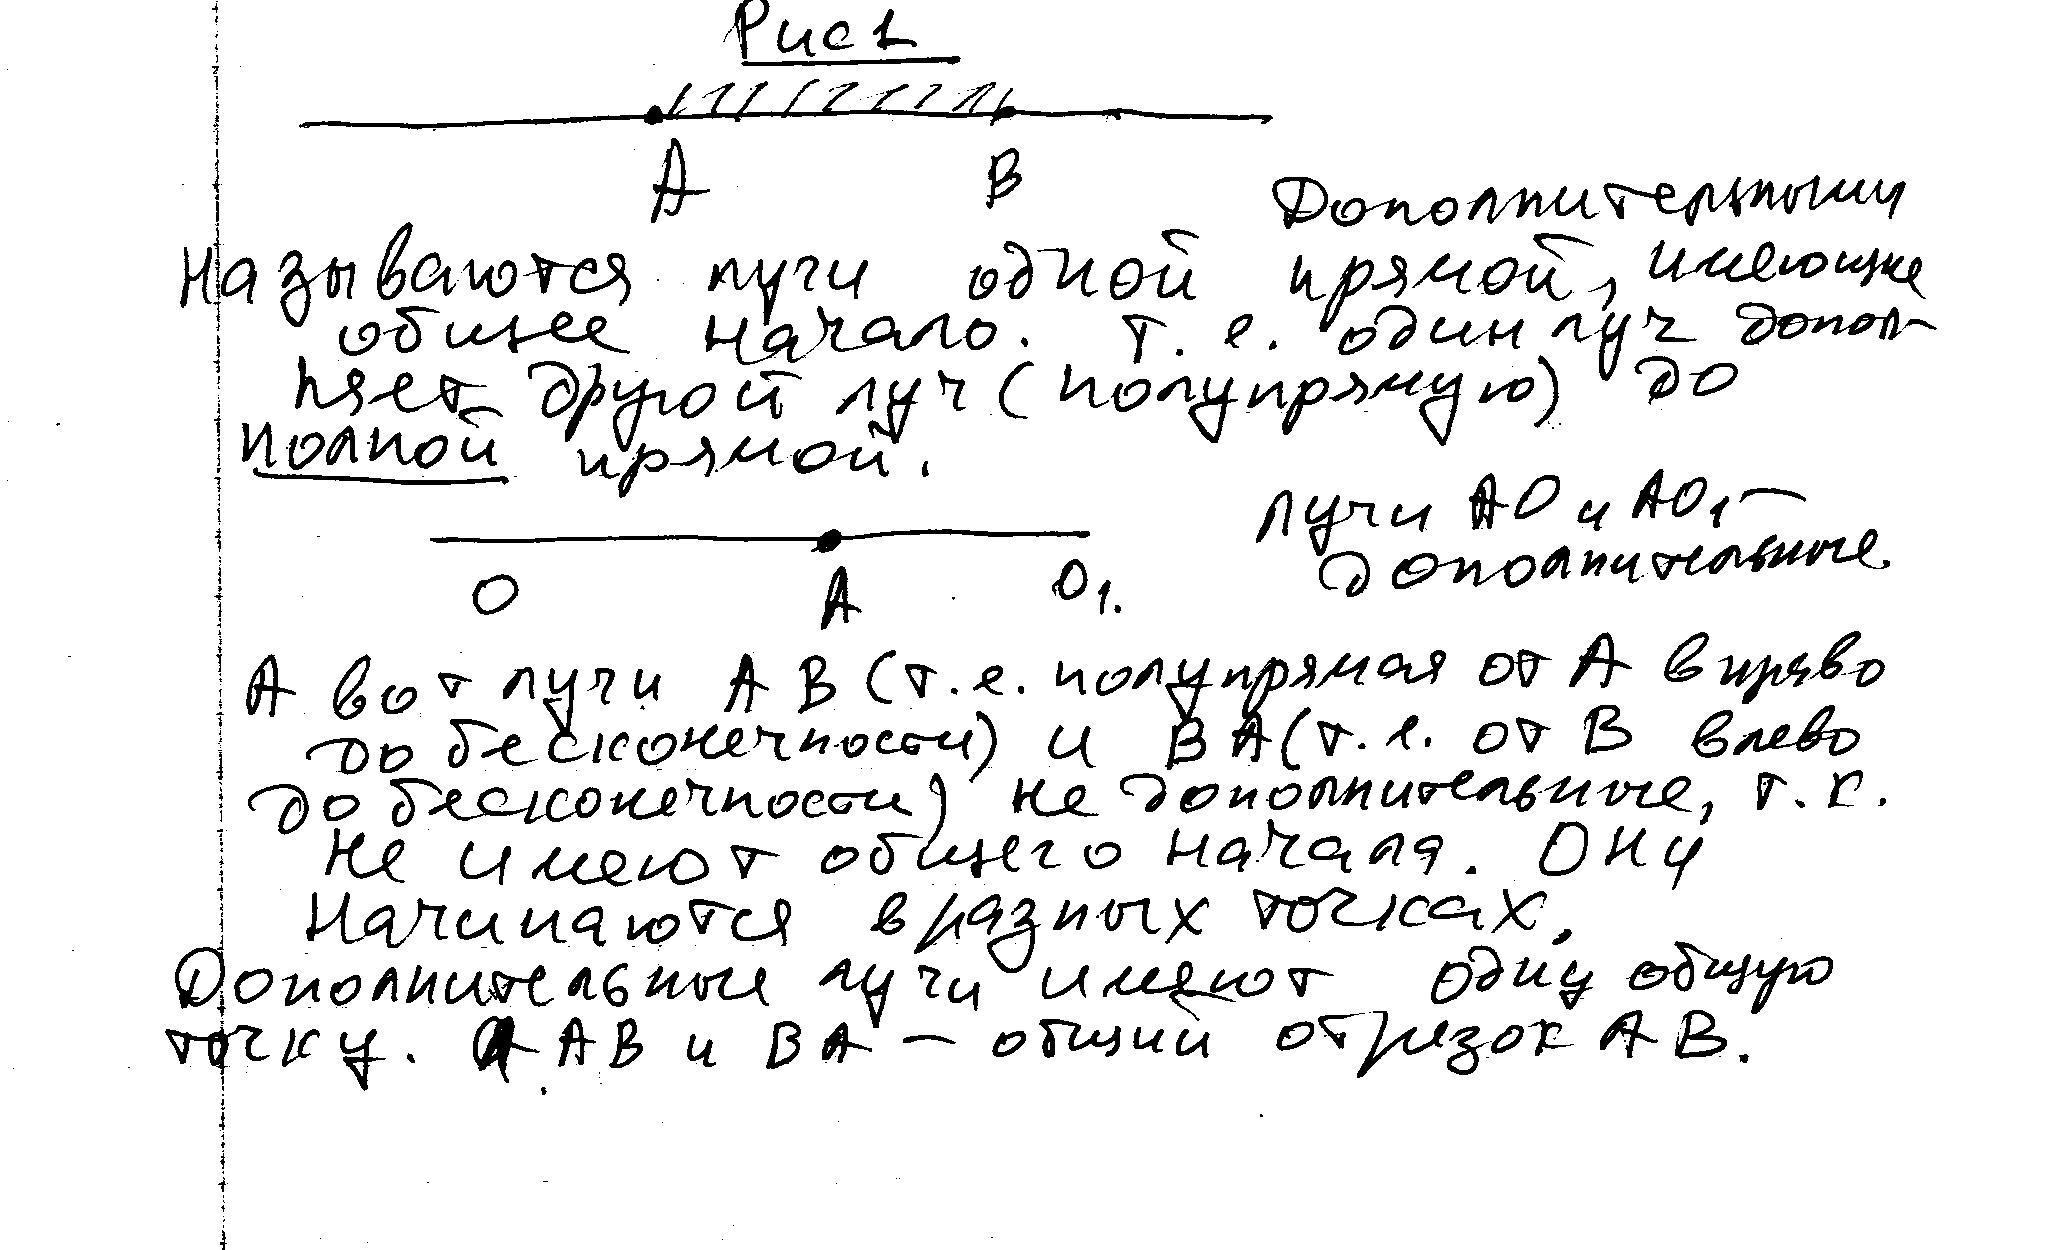 Рис 1
А В
Дополнительными
называются лучи одной прямой, имеющие
общее начало. т. е. один луч допол-
няет другой луч (полупрямую) до
полной прямой.
лучи АО и АО₁ —
дополнительные
О А О₁.
А вот лучи АВ (т. е. полупрямая от А вправо
до бесконечности) и ВА (т. е. от В влево
до бесконечности) не дополнительные, т. к.
не имеют общего начала. Они
начинаются в разных точках.
Дополнительные лучи имеют одну общую
точку. А АВ и ВА — общий отрезок АВ.